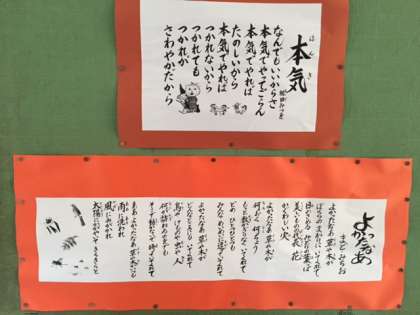 本気
ほんき
相田みつを
なんでもいいからさ
本気でやってごらん
本気でやれば
たのしいから
本気でやれば
つかれないから
つかれても
つかれが
さわやかだから
よかったなあ
まど みちお
よかったなあ 草や木が
ぼくらの まわりに いてくれて
目のさめる みどりの葉っぱ
美しいものの代表 花
かぐわしい実
よかったなあ 草や木が
何おく 何ちょう
もっと数かぎりなく いてくれて
どの ひとつひとつも
みんな めいめいに違っていてくれて
よかったなあ 草や木が
どんなところにも いてくれて
鳥や けものや 虫や 人
何が訪れるのをでも
そこで動かないで 待っていてくれて
ああ よかったなあ 草や木がいつも
雨に洗われ
風にみがかれ
太陽にかがやいて きらきらと